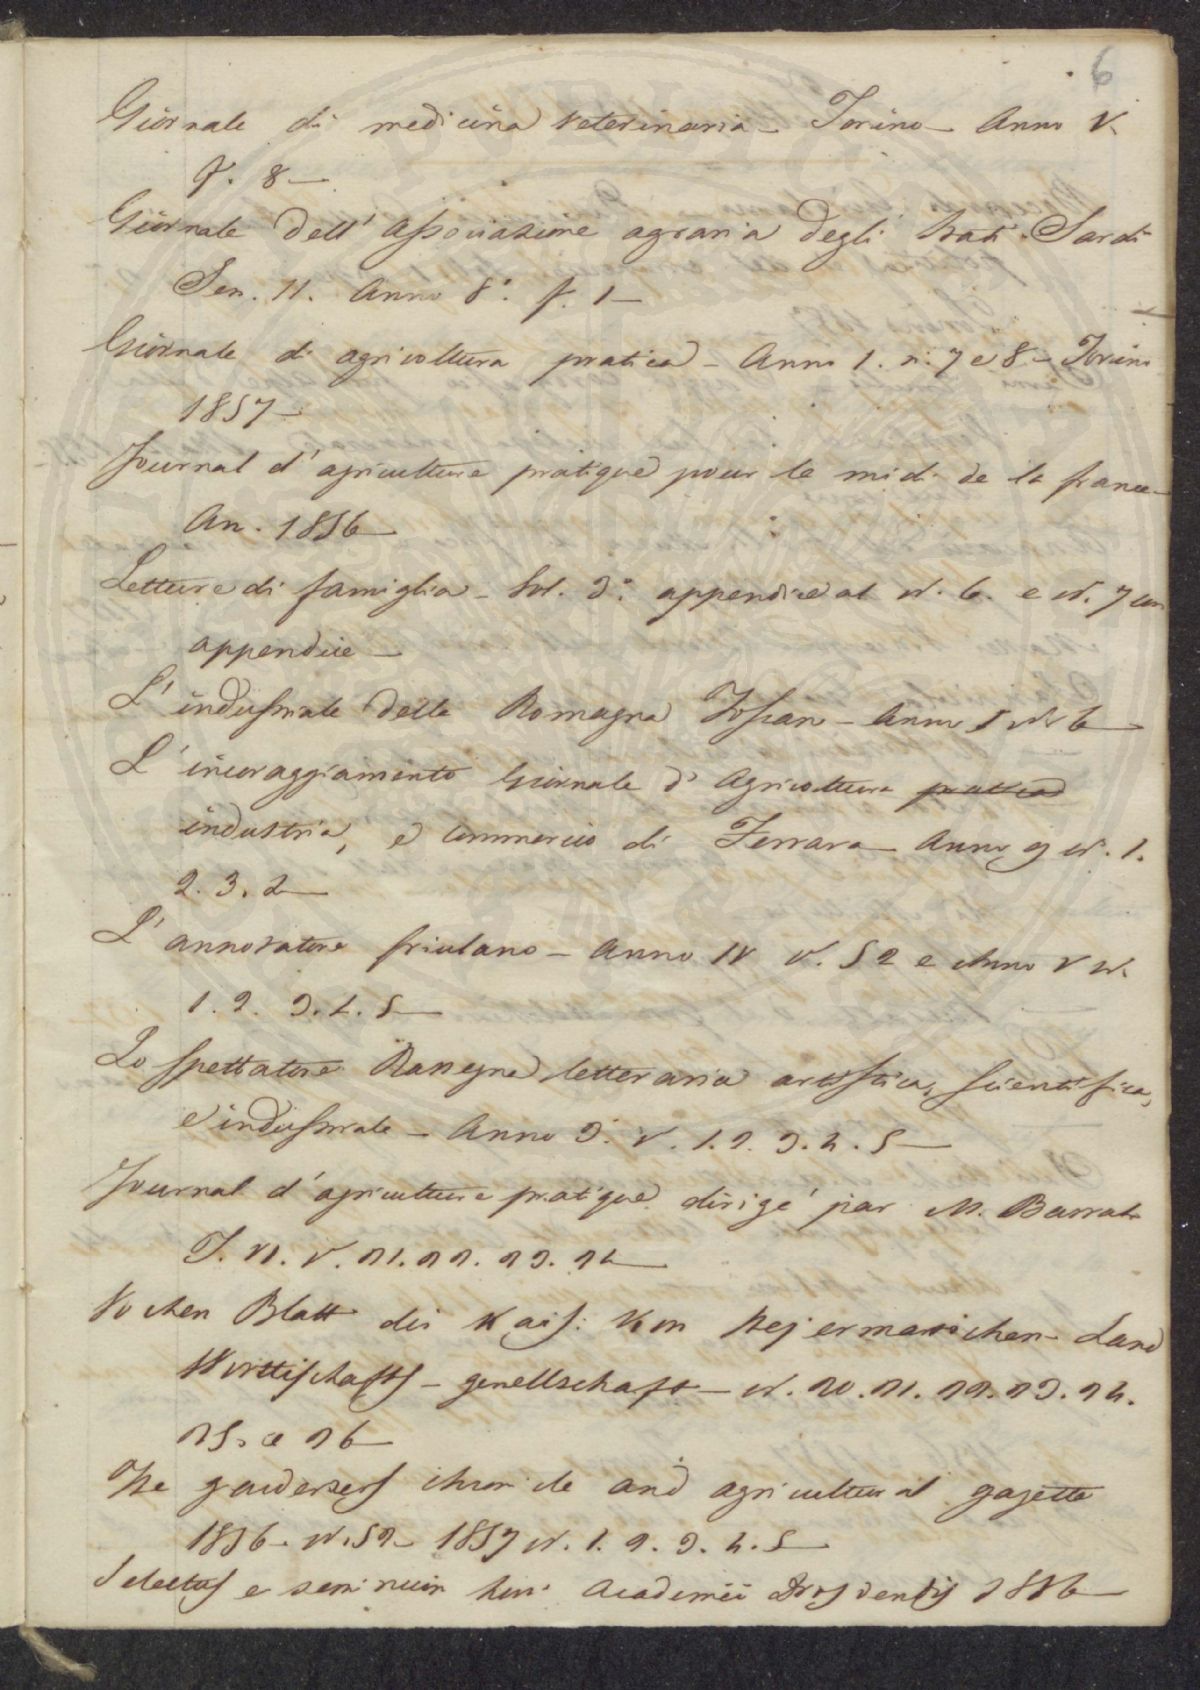 6
Giornale di medicina veterinaria - Torino - Anno V.
f. 8 -
Giornale dell' associazione agraria degli Stati Sardi
Ser. 11. Anno 8°. f. 1 -
Giornale di agricoltura pratica - Anno 1. n. 7 e 8 - Torino
1857 -
Journal d' agriculture pratique pour le midi de la france -
An. 1856
Letture di famiglia - Vol. 3° appendice al N. 6. e N. 7 con
appendice -
L' industriale della Romagna Toscana - Anno I N. 6
L' incoraggiamento Giornale d' Agricoltura pratica
industria, e commercio di Ferrara Anno 9 N. 1.
2. 3. 4
L' annotatore friulano - Anno IV N. 52 e Anno V N.
1. 2. 3. 4. 5
Lo Spettatore Rassegna letteraria artistica, scientifica,
e industriale - Anno 3° N. 1. 2. 3. 4. 5
Journal d' agriculture pratique dirigé par M. Barral
T. VI. N. 21. 22. 23. 24
Wochen Blatt der Kais: Kon Stejermarischen Land
Wirttischafts - gesellschaft - N. 20. 21. 22. 23. 24.
25. e 26
The gardeners chronicle and agricultural gazette
1856. N. 52 - 1857 N. 1. 2. 3. 4. 5
Selectus e seminum Academiæ 1856